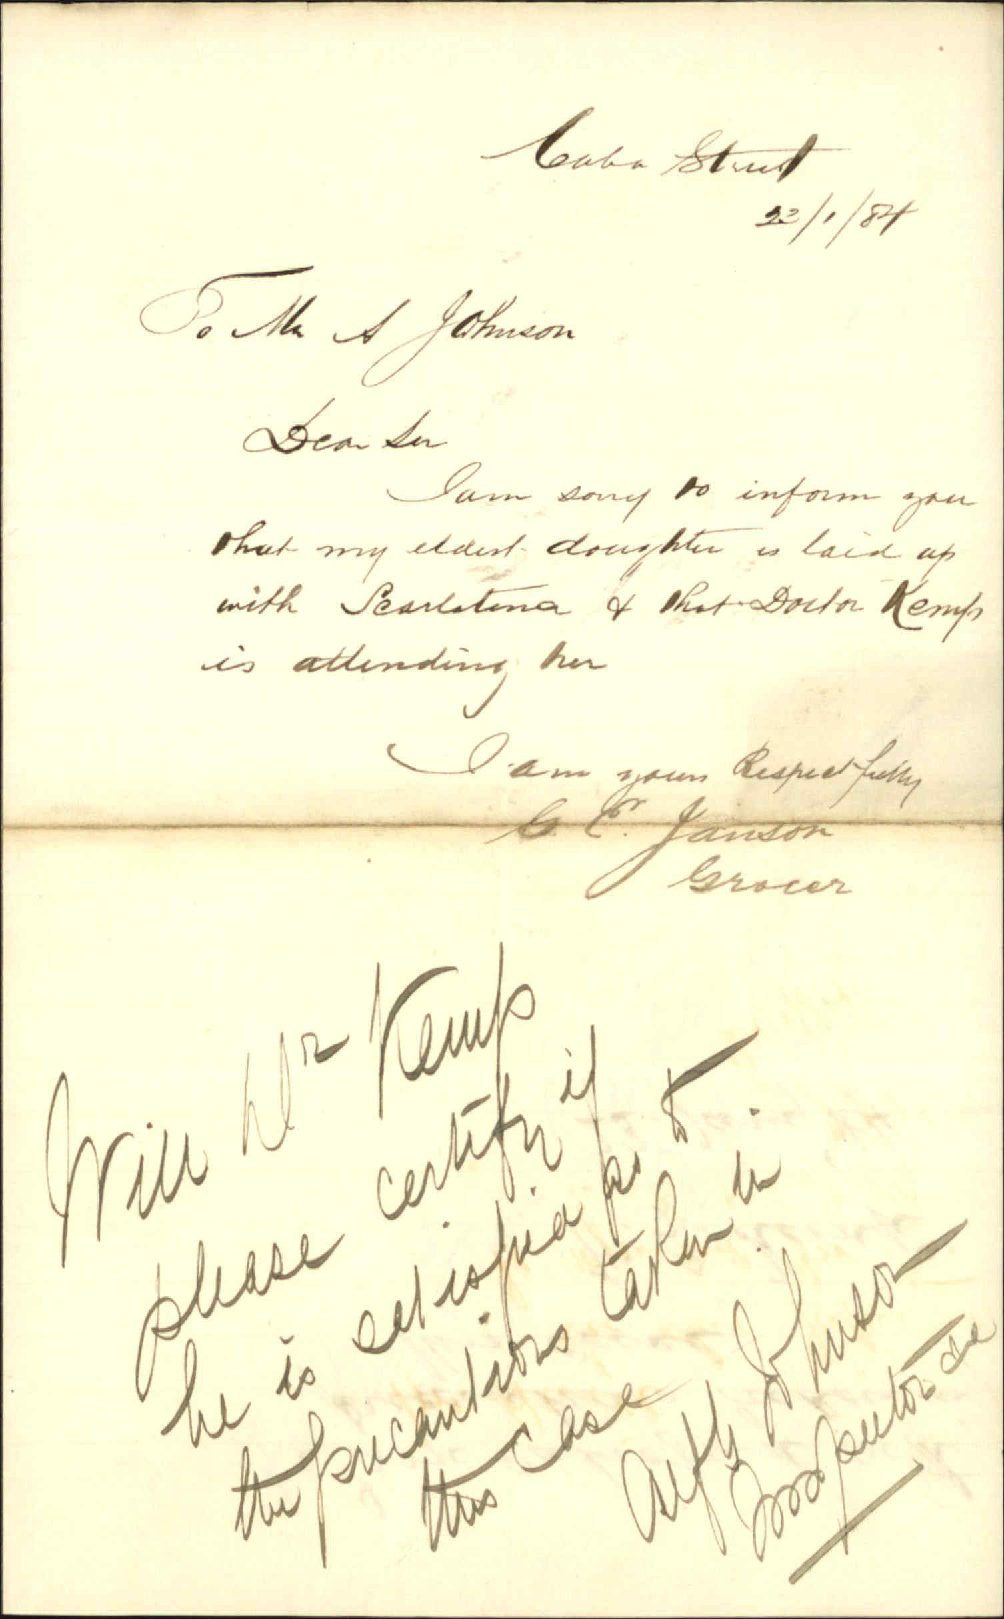 Cuba Street
22/1/84
To Mr A Johnson
Dear Sir
I am sorry to inform you
that my eldest daughter is laid up
with Scarletina & that Doctor Kemp
is attending her
I am yours Respectfully
C. Janson
Grocer
Will Dr Kemp
please certify if
he is satisfied as to
the precautions taken in
this case
Johnson
Inspector &c